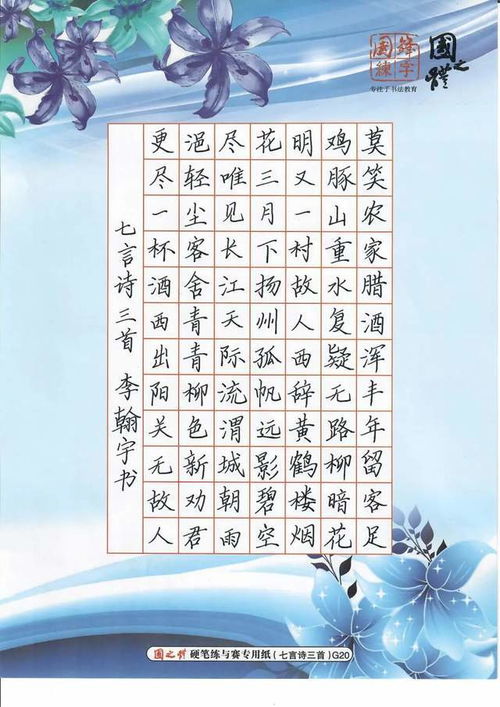 國之禮
专注于书法教育
莫笑农家腊酒浑丰年留客足
鸡豚山重水复疑无路柳暗花
明又一村故人西辞黄鹤楼烟
花三月下扬州孤帆远影碧空
尽唯见长江天际流渭城朝雨
浥轻尘客舍青青柳色新劝君
更尽一杯酒西出阳关无故人
七言诗三首 李翰宇书
硬笔练与赛专用纸(七言诗三首)G20